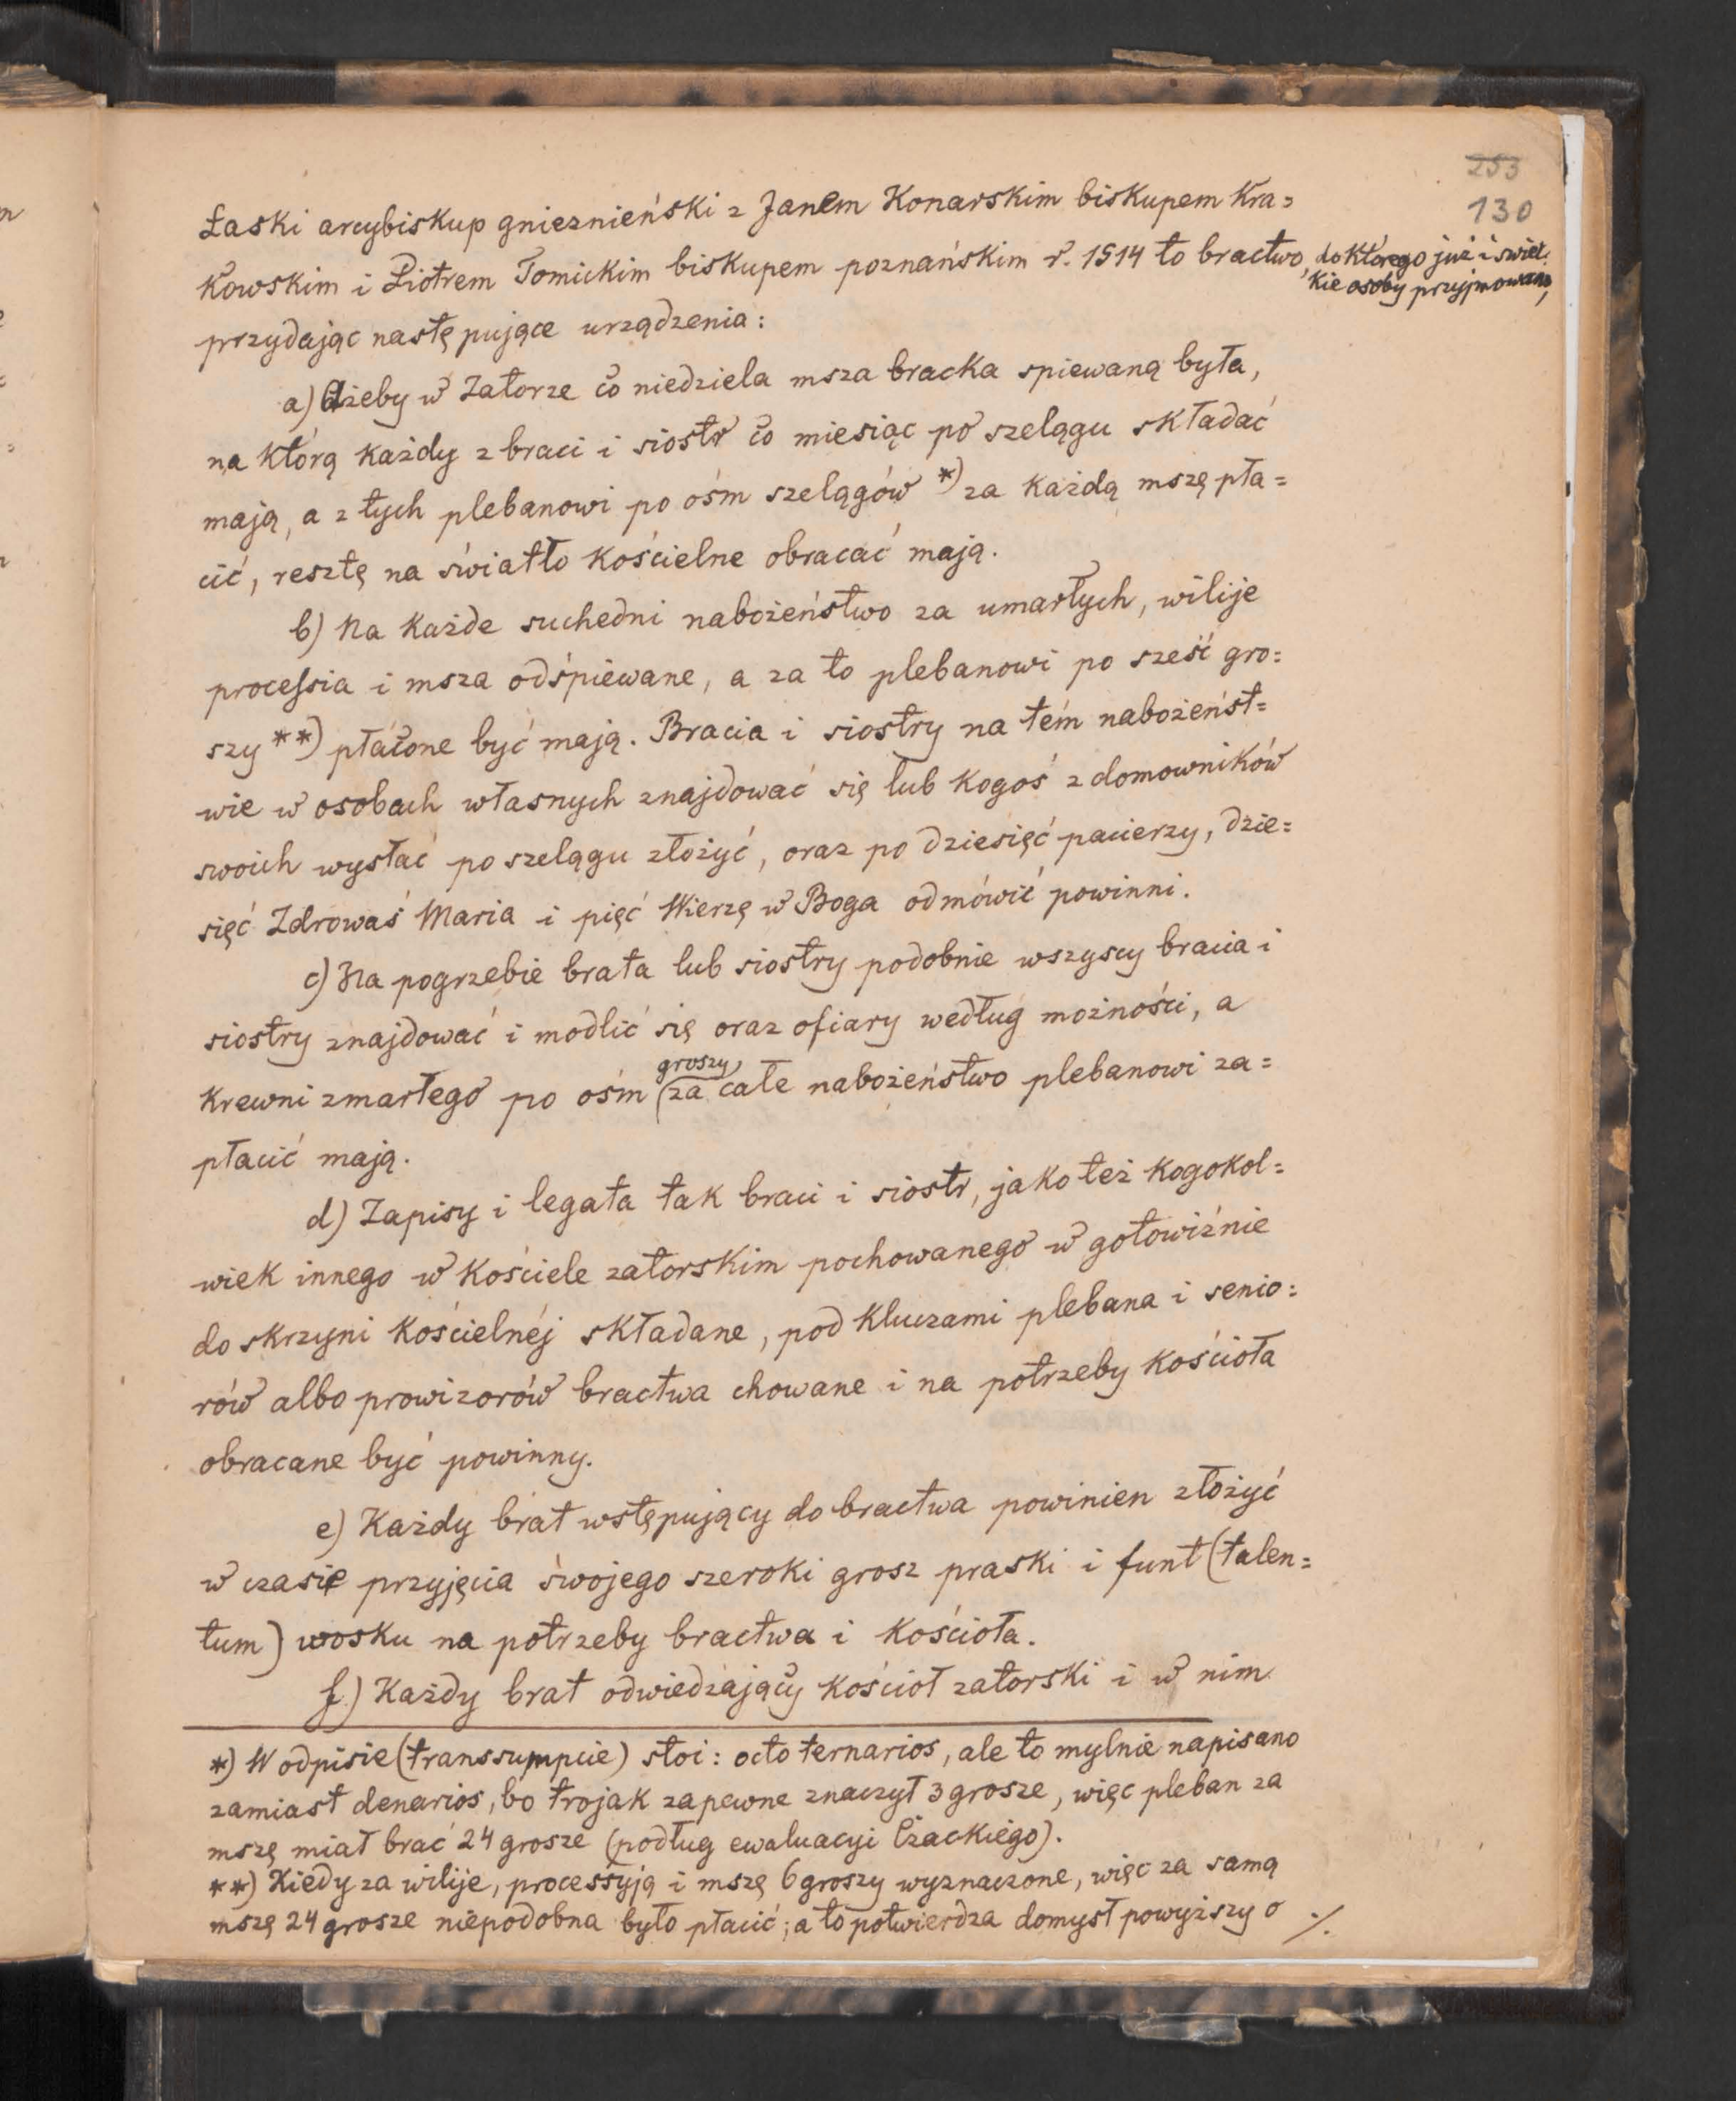 253
130
Łaski arcybiskup gnieznieński z Janem Konarskim biskupem Kra=
kowskim i Piotrem Tomickim biskupem poznańskim r. 1514 to bractwo, do którego już i świec=
kie osoby przyjmowano,
przydając następujące urządzenia:
a) Ażeby w Zatorze co niedziela msza bracka spiewaną była,
na którą każdy z braci i siostr co miesiąc po szelągu składać
mają, a z tych plebanowi po ośm szelągów *) za każdą mszę pła=
cić, resztę na światło kościelne obracać mają.
b) Na każde suchedni nabożeństwo za umarłych, wilije
processia i msza odśpiewane, a za to plebanowi po sześć gro=
szy **) płacone być mają. Bracia i siostry na tém nabożeńst=
wie w osobach własnych znajdować się lub kogoś z domowników
swoich wysłać po szelągu złożyć, oraz po dziesięć pacierzy, dzie=
sięć Zdrowaś Maria i pięć Wierzę w Boga odmówić powinni.
c) Na pogrzebie brata lub siostry podobnie wszyscy bracia i
siostry znajdować i modlić się oraz ofiary według możności, a
krewni zmarłego po ośm groszy za całe nabożeństwo plebanowi za=
płacić mają.
d) Zapisy i legata tak braci i siostr, jako też kogokol=
wiek innego w kościele zatorskim pochowanego w gotowiźnie
do skrzyni kościelnéj składane, pod kluczami plebana i senio=
rów albo prowizorów bractwa chowane i na potrzeby kościoła
obracane być powinny.
e) Każdy brat wstępujący do bractwa powinien złożyć
w czasie przyjęcia swojego szeroki grosz praski i funt (talen=
tum) wosku na potrzeby bractwa i kościoła.
f) Każdy brat odwiedzający kościoł zatorski i w nim
*) W odpisie (transsumpcie) stoi: octo ternarios, ale to mylnie napisano
zamiast denarios, bo trojak zapewne znaczył 3 grosze, więc pleban za
mszę miał brać 24 grosze (podług ewaluacyi Czackiego).
**) Kiedy za wilije, processyją i mszę 6 groszy wyznaczone, więc za samą
mszę 24 grosze niepodobna było płacić; a to potwierdza domysł powyższy o ./.